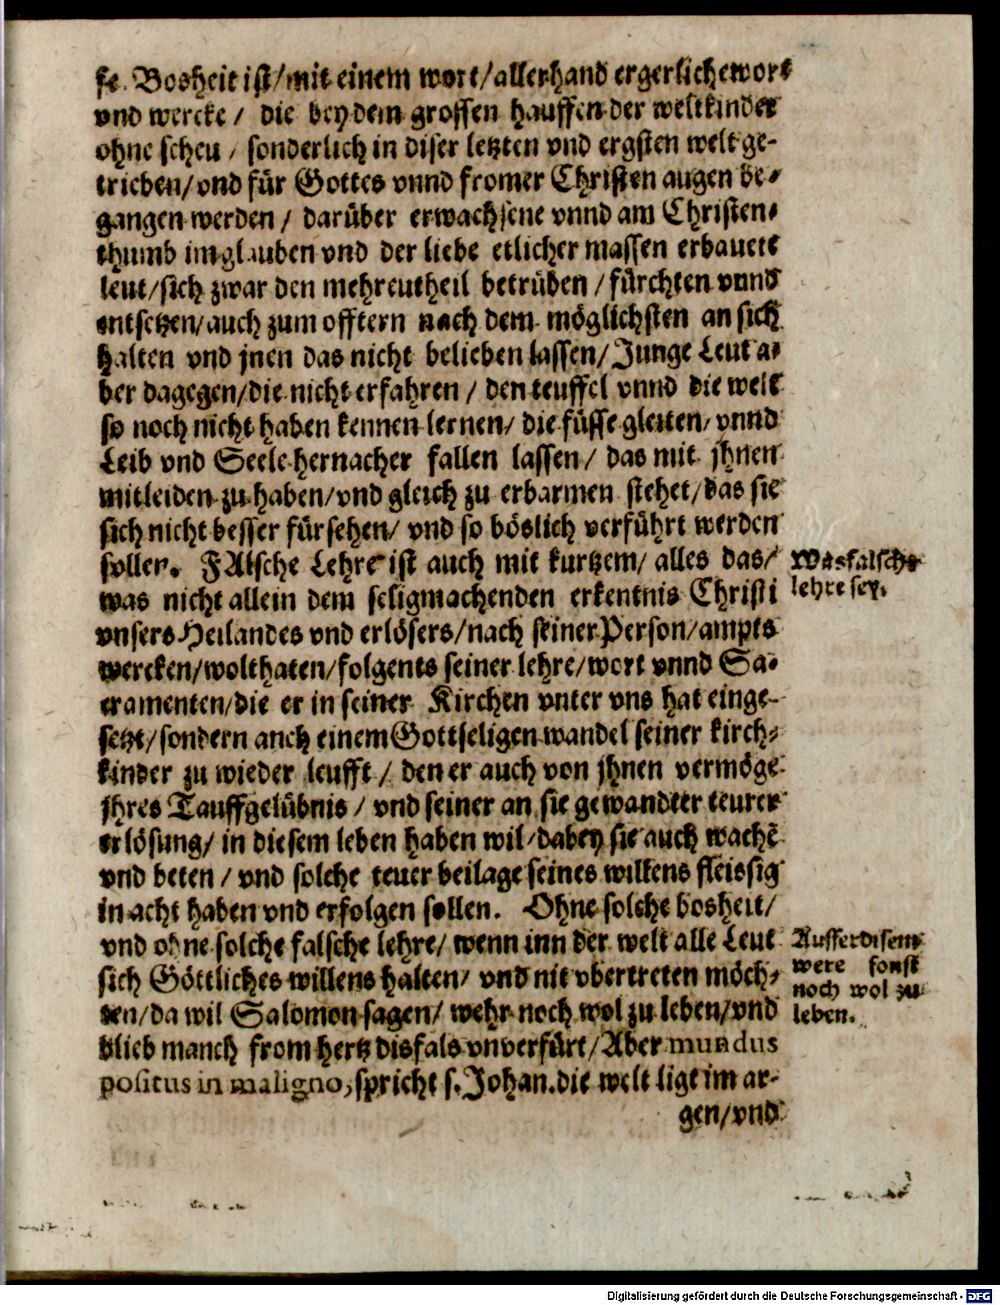 se. Bosheit ist/ mit einem wort/ allerhand ergerliche wort
vnd wercke / die bey dem grossen hauffen der weltkinder
ohne scheu / sonderlich in diser letzten vnd ergsten welt ge-
trieben/ vnd für Gottes vnnd fromer Christen augen be-
gangen werden / darüber erwachsene vnnd am Christen-
thumb im glauben vnd der liebe etlicher massen erbauete
leut/ sich zwar den mehreutheil betrüben / fürchten vnnd
entsetzen/ auch zum offtern nach dem möglichsten an sich
halten vnd jnen das nicht belieben lassen/ Junge Leut a-
ber dagegen/ die nicht erfahren / den teuffel vnnd die welt
so noch nicht haben kennen lernen/ die füsse gleiten/ vnnd
Leib vnd Seele hernacher fallen lassen/ das mit jhnen
mitleiden zu haben/ vnd gleich zu erbarmen stehet/ das sie
sich nicht besser fürsehen/ vnd so böslich verführt werden
sollen. FAlsche Lehre ist auch mit kurtzem/ alles das/
Was falsche
lehre sey.
was nicht allein dem seligmachenden erkentnis Christi
vnsers Heilandes vnd erlösers/ nach seiner Person/ ampts
wercken/ wolthaten/ folgents seiner lehre/ wort vnnd Sa-
cramenten/ die er in seiner Kirchen vnter vns hat einge-
setzt/ sondern auch einem Gottseligen wandel seiner kirch-
kinder zu wieder leufft / den er auch von jhnen vermöge
jhres Tauffgelübnis / vnd seiner an sie gewandter teurer
erlösung/ in diesem leben haben wil/ dabey sie auch wachē
vnd beten / vnd solche teuer beilage seines willens fleissig
in acht haben vnd erfolgen sollen. Ohne solche bosheit/
vnd ohne solche falsche lehre/ wenn inn der welt alle Leut
Ausser disem
were sonst
noch wol zu
leben.
sich Göttliches willens halten/ vnd nit vbertreten möch-
ten/ da wil Salomon sagen/ wehr noch wol zu leben/ vnd
blieb manch from hertz disfals vnverfürt/ Aber mundus
positus in maligno, spricht s. Johan. die welt ligt im ar-
gen/ vnd
Digitalisierung gefördert durch die Deutsche Forschungsgemeinschaft - DFG